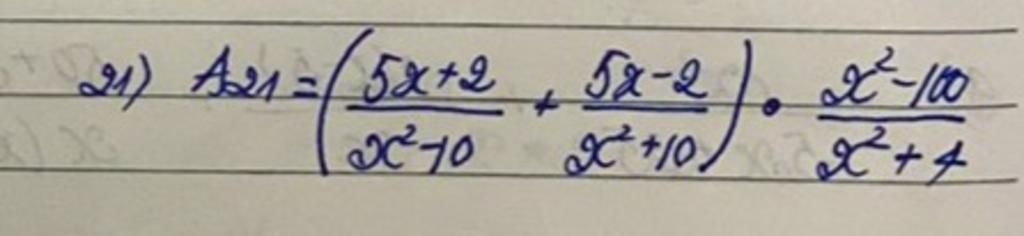 21) A21 = ( (5x+2)/(x²-10) + (5x-2)/(x²+10) ) • (x²-100)/(x²+4)